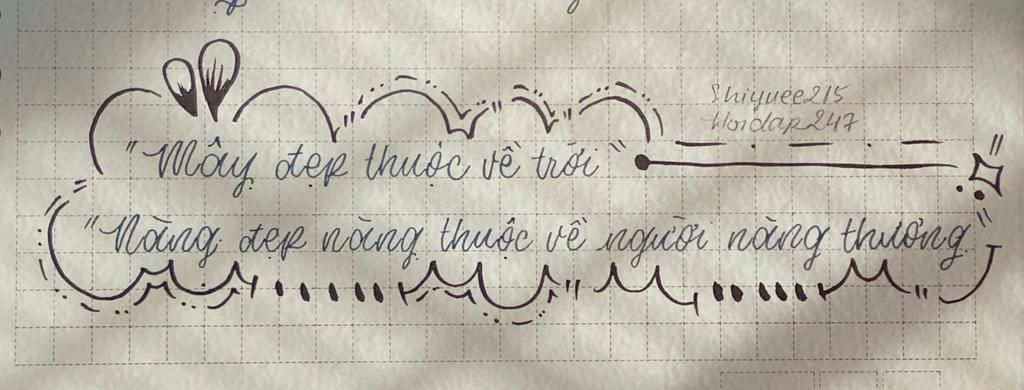 Shiyuee215
Hoidap247
"Mây đẹp thuộc về trời"
"Nàng đẹp nàng thuộc về người nàng thương"